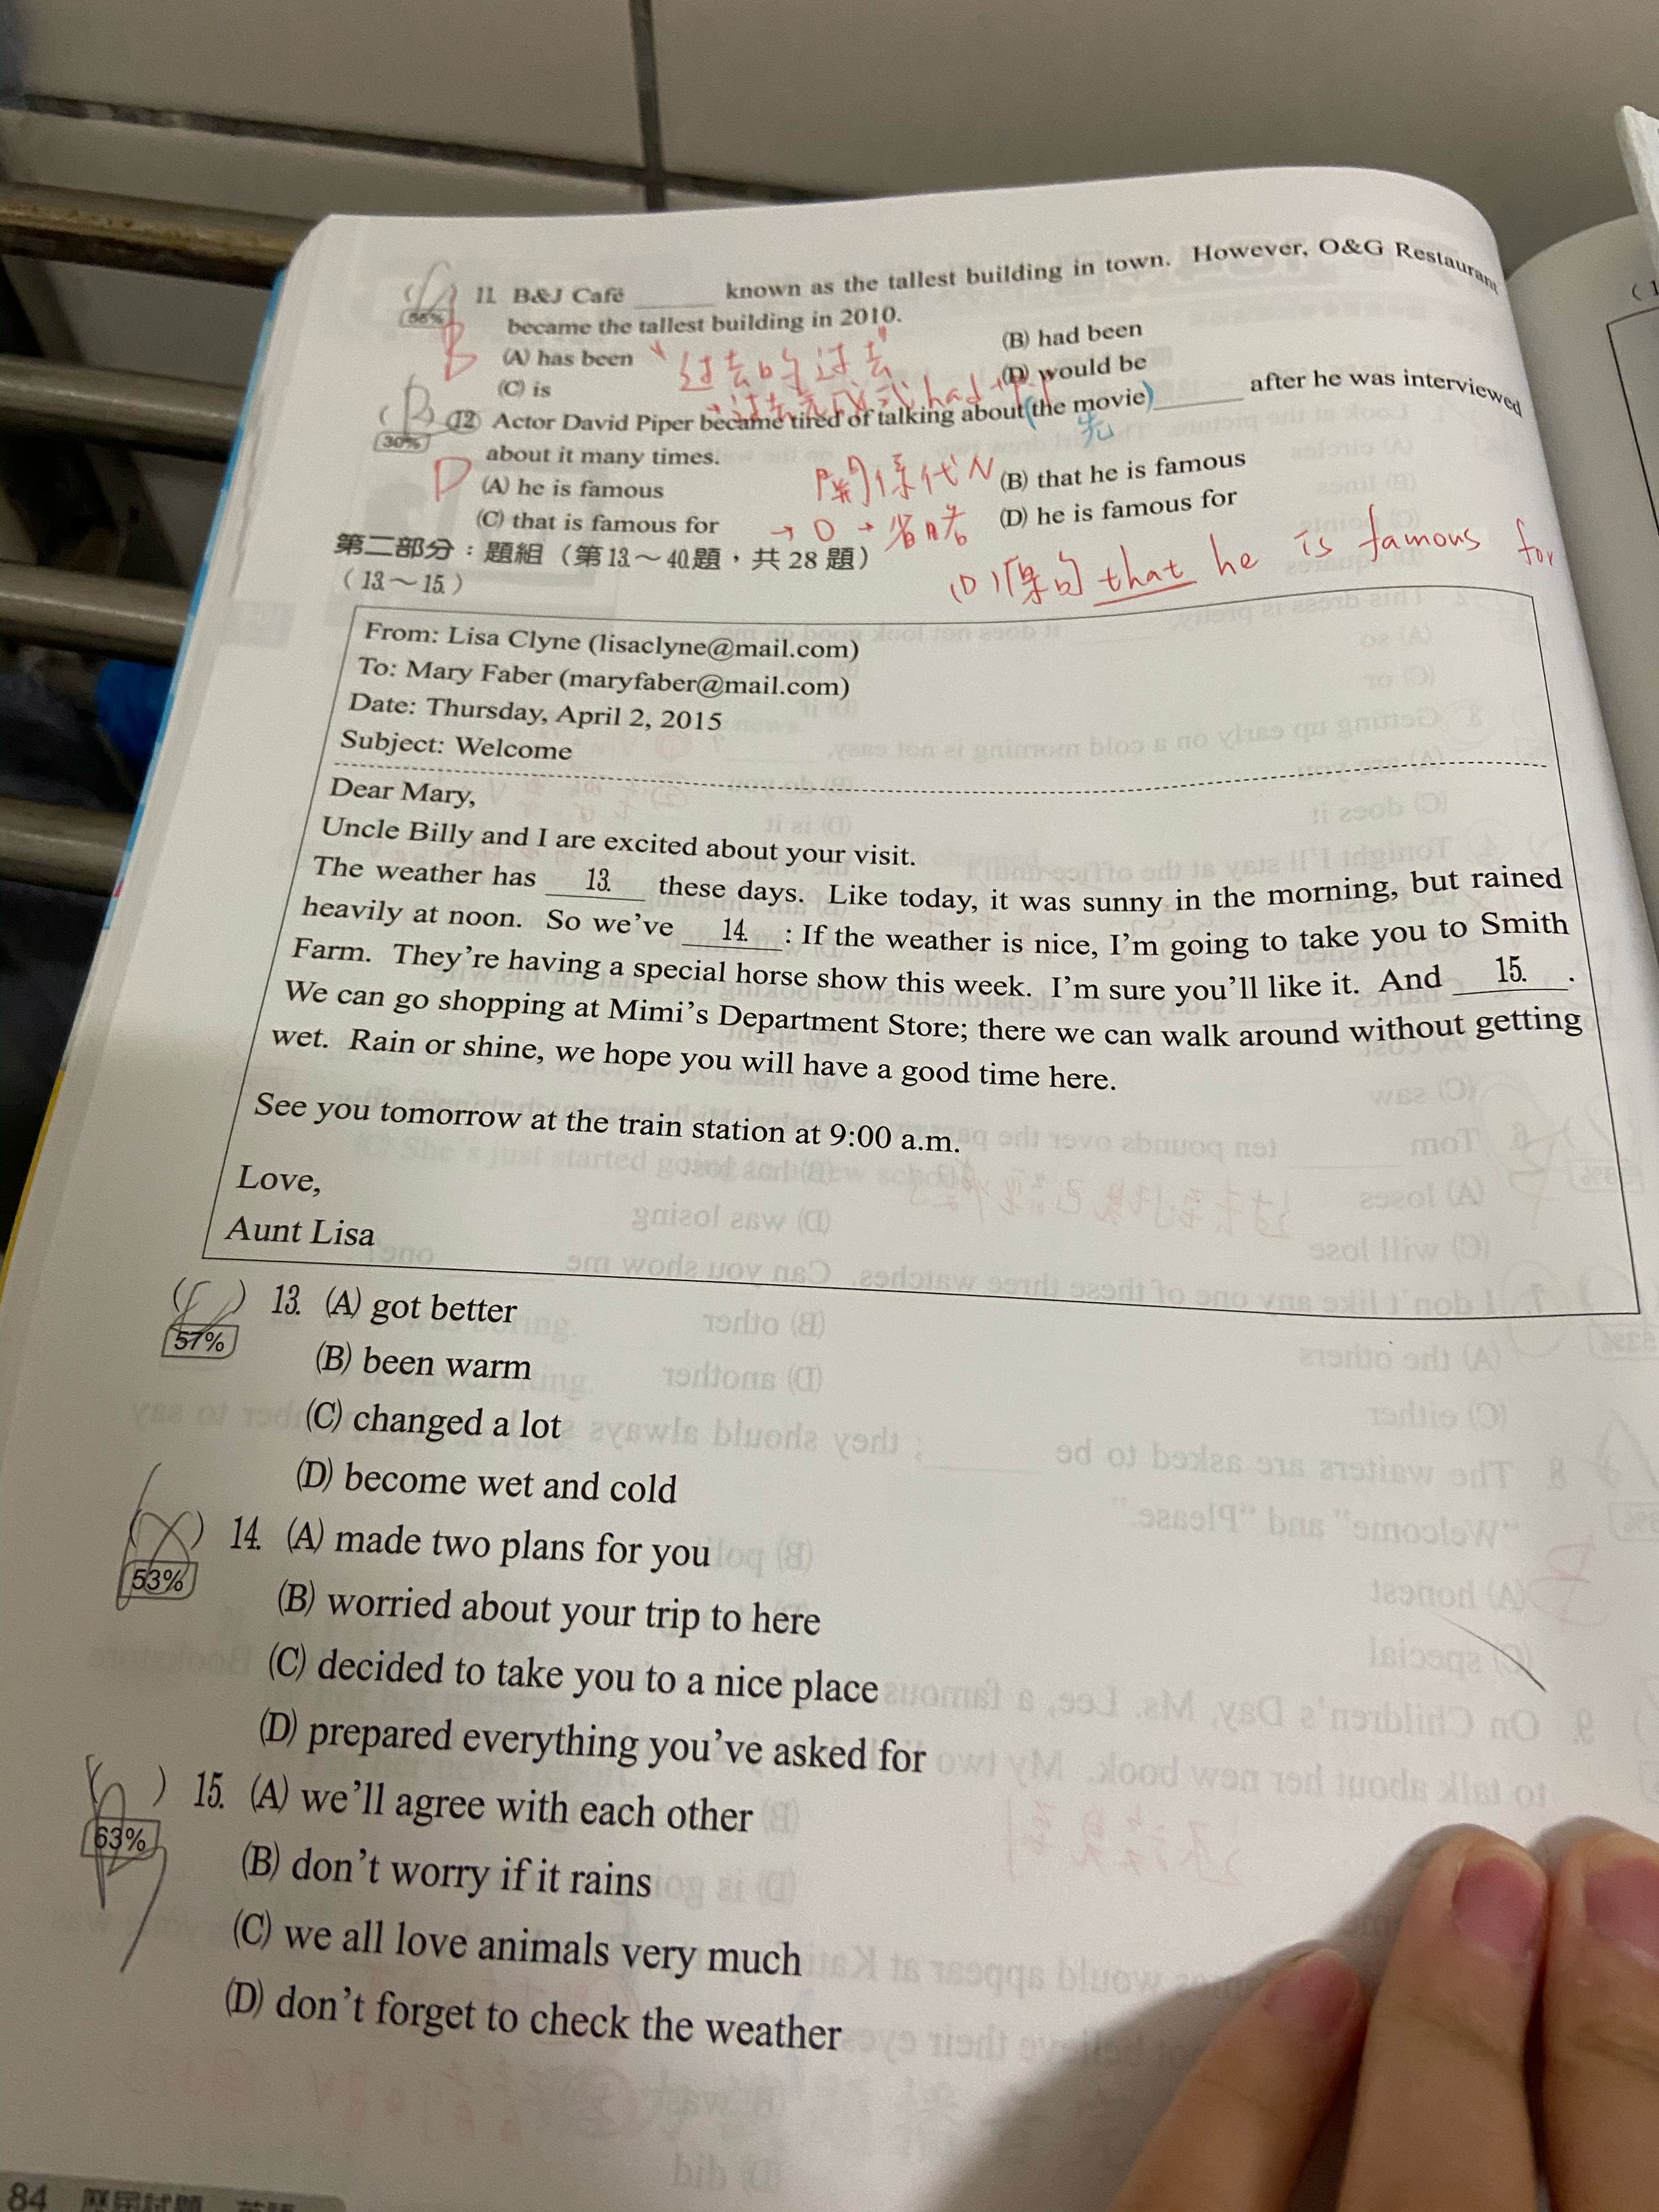 11. B&J Café ______ known as the tallest building in town. However, O&G Restaurant
56%
became the tallest building in 2010.
B
(A) has been
(B) had been
過去的過去
(C) is
(D) would be
→過去完成式 had + p.p
(B) 12. Actor David Piper became tired of talking about (the movie) ______ after he was interviewed
30%
先
about it many times.
D
(A) he is famous
關係代N
(B) that he is famous
(C) that is famous for
→ O → 省略
(D) he is famous for
第二部分：題組（第13～40題，共28題）
（13～15）
(D) 原句 that he is famous for
From: Lisa Clyne (lisaclyne@mail.com)
To: Mary Faber (maryfaber@mail.com)
Date: Thursday, April 2, 2015
Subject: Welcome
Dear Mary,
Uncle Billy and I are excited about your visit.
The weather has 13. these days. Like today, it was sunny in the morning, but rained
heavily at noon. So we've 14. : If the weather is nice, I'm going to take you to Smith
Farm. They're having a special horse show this week. I'm sure you'll like it. And 15. .
We can go shopping at Mimi's Department Store; there we can walk around without getting
wet. Rain or shine, we hope you will have a good time here.
See you tomorrow at the train station at 9:00 a.m.
Love,
Aunt Lisa
( ) 13. (A) got better
57%
(B) been warm
(C) changed a lot
(D) become wet and cold
( ) 14. (A) made two plans for you
53%
(B) worried about your trip to here
(C) decided to take you to a nice place
(D) prepared everything you've asked for
( ) 15. (A) we'll agree with each other
63%
(B) don't worry if it rains
(C) we all love animals very much
(D) don't forget to check the weather
84 歷屆試題 英語